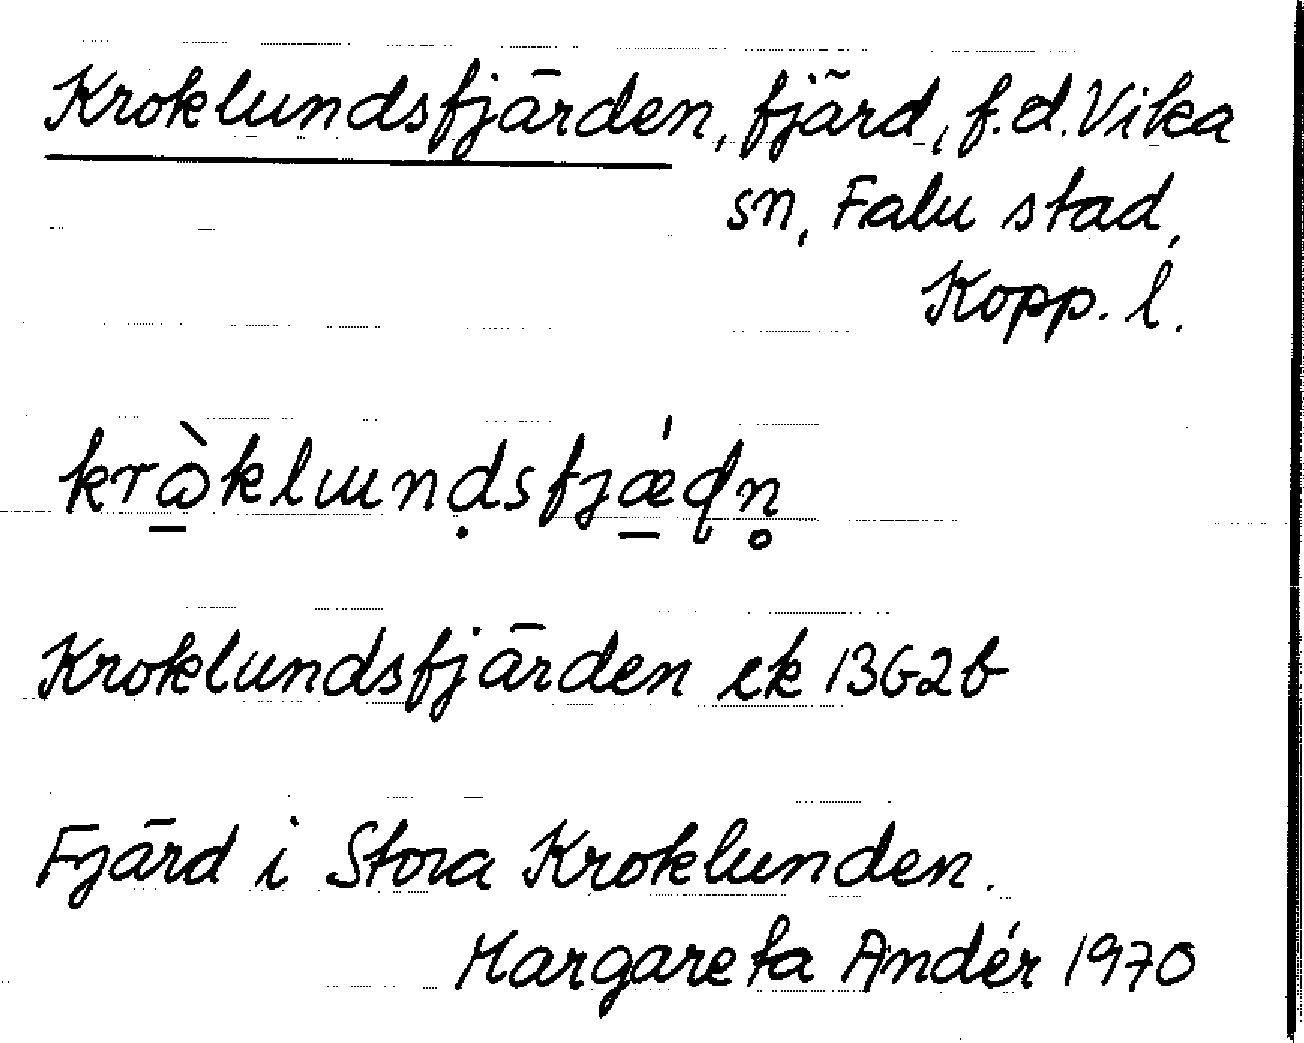 Kroklundsfjärden, fjärd, f.d. Vika
sn, Falu stad,
Kopp. l.
kròklundsfjǽdn
Kroklundsfjärden ek 13G2b
Fjärd i Stora Kroklunden.
Margareta Andér 1970